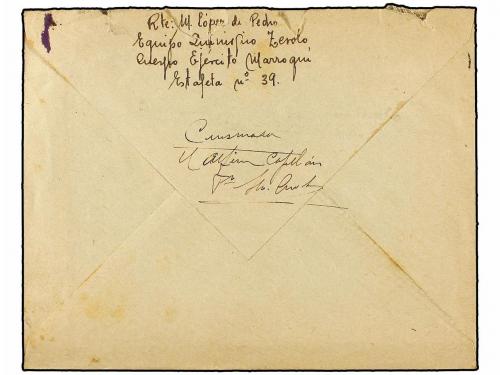 Rte: M. López de Pedro
Equipo Quirúrgico Zerolo
Cuerpo Ejército Marroquí
Estafeta nº 39.
Censurada
Capellán